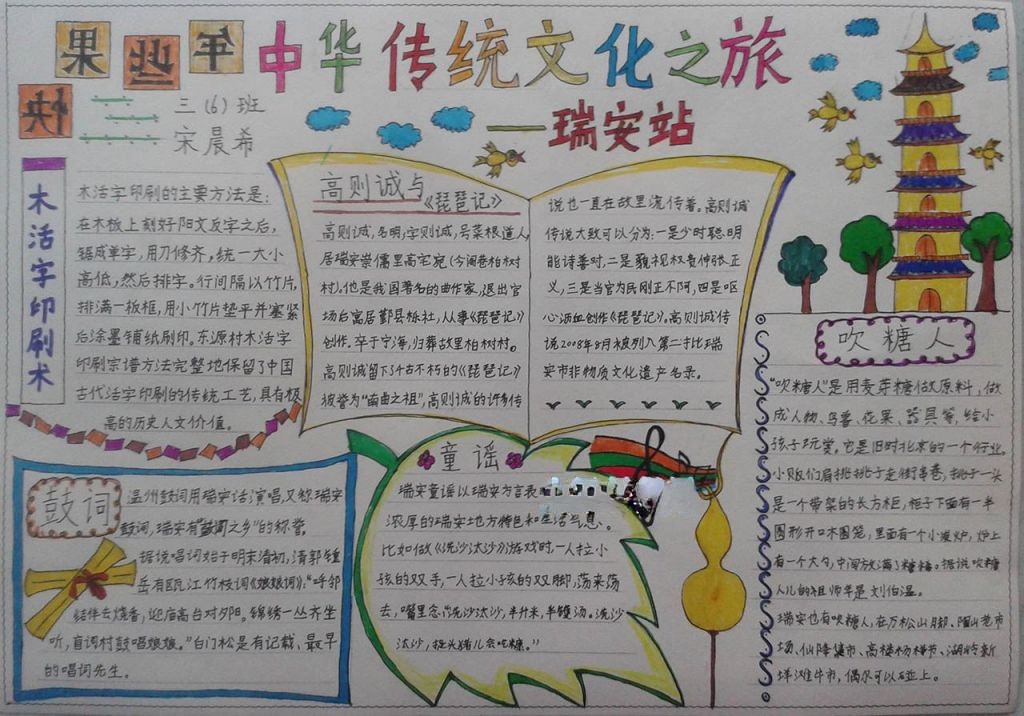 中华传统文化之旅
——瑞安站
三（6）班
宋晨希
木活字印刷术
木活字印刷的主要方法是：
在木板上刻好阳文反字之后，
锯成单字，用刀修齐，统一大小
高低，然后排字。行间隔以竹片，
排满一板框，用小竹片垫平并塞紧
后涂墨铺纸刷印。东源村木活字
印刷宗谱方法完整地保留了中国
古代活字印刷的传统工艺，具有极
高的历史人文价值。
高则诚与
《琵琶记》
高则诚，名明，字则诚，号菜根道人，
居瑞安崇儒里高宅宛（今阁巷柏树
村）。他是我国著名的曲作家，退出官
场后寓居鄞县栎社，从事《琵琶记》
创作，卒于宁海，归葬故里柏树村。
高则诚留下千古不朽的《琵琶记》
被誉为“南曲之祖”，高则诚的许多传
说也一直在故里流传着。高则诚
传说大致可以分为：一是少时聪明
能诗善对，二是藐视权贵伸张正
义，三是当官为民刚正不阿，四是呕
心沥血创作《琵琶记》。高则诚传
说2008年8月被列入第二批瑞
安市非物质文化遗产名录。
鼓词
温州鼓词用瑞安话演唱，又称瑞安
鼓词，瑞安有“鼓词之乡”的称誉。
据说唱词始于明末清初，清郭钟
岳有瓯江竹枝词《娘娘词》：“呼邻
结伴去烧香，迎庙高台对夕阳。锦绣一丛齐坐
听，盲词村鼓唱娘娘。”白门松是有记载、最早
的唱词先生。
童谣
瑞安童谣以瑞安方言表
浓厚的瑞安地方特色和生活气息。
比如做《洗沙汰沙》游戏时，一人拉小
孩的双手，一人拉小孩的双脚，荡来荡
去，嘴里念“洗沙汰沙，半升米，半镬汤。洗沙
汰沙，
吹糖人
“吹糖人”是用麦芽糖做原料，做
成人物、鸟兽、花果、器具等，给小
孩子玩赏。它是旧时北京的一个行业，
小贩们肩挑挑子走街串巷，挑子一头
是一个带架的长方柜，柜子下面有一半
圆形开口木圆笼，里面有一个小煤炉，炉上
有一个大勺，中间放满了糖稀。据说吹糖
人儿的祖师爷是刘伯温。
瑞安也有吹糖人，在万松山月脚、隆山老市
场、仙降集市、高楼杨梅节、湖岭新
洋滩牛市，偶尔可以碰上。